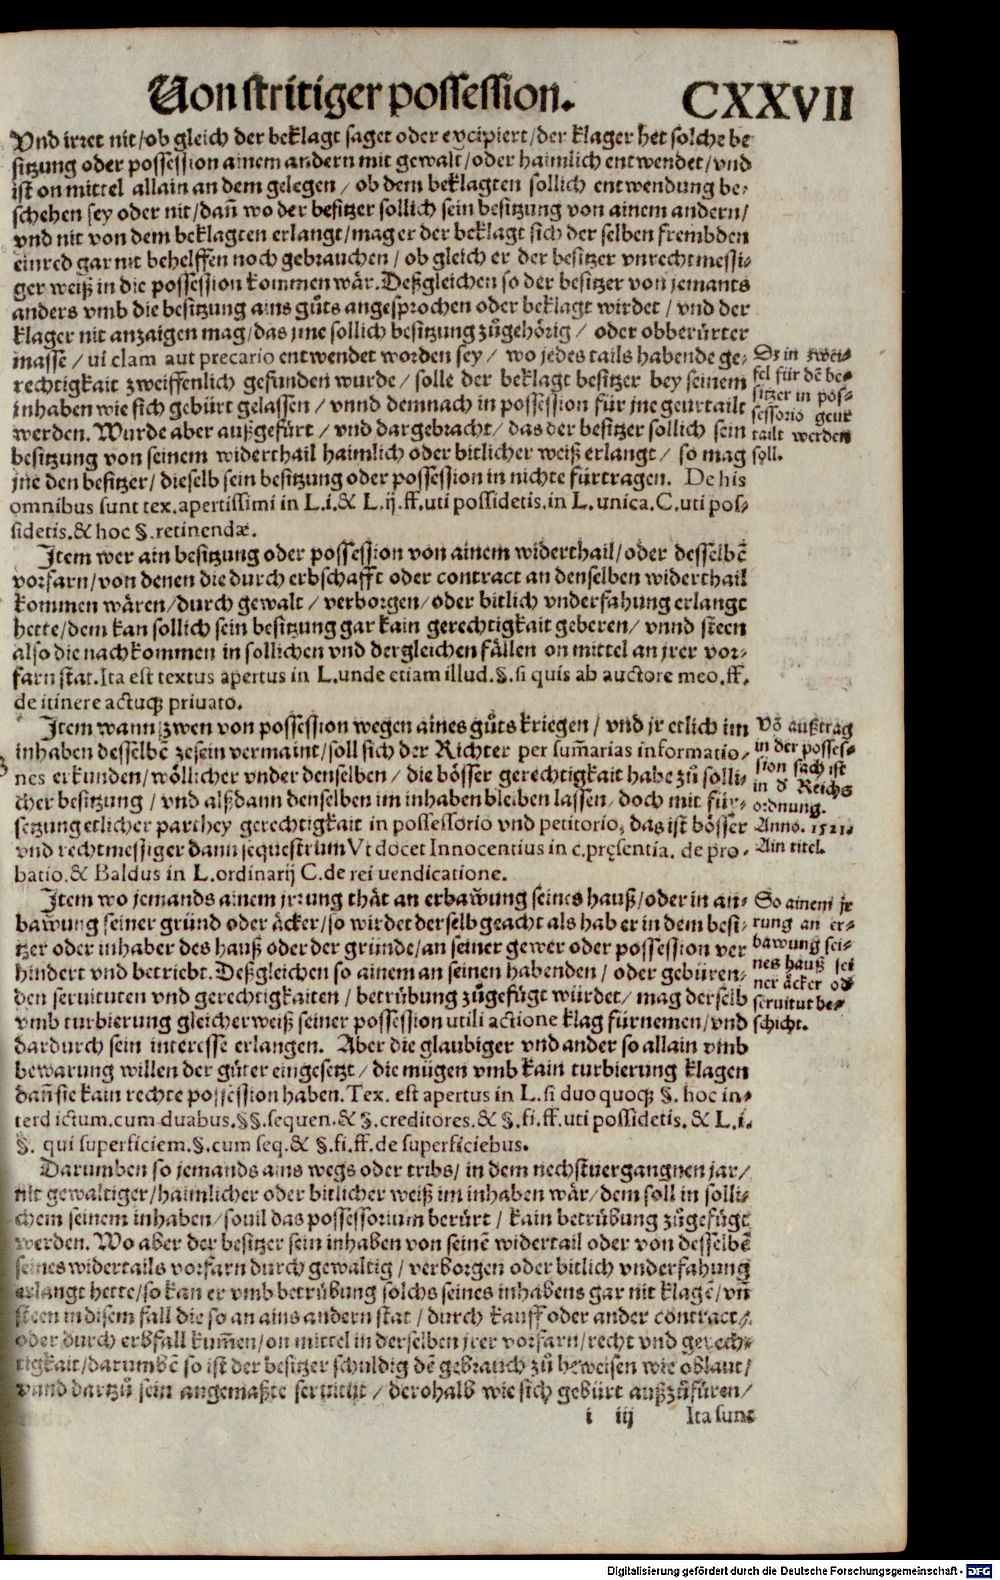 Von stritiger possession. CXXVII
Vnd irret nit/ ob gleich der beklagt saget oder excipiert/ der klager het solche be
sitzung oder possession ainem andern mit gewalt/ oder haimlich entwendet/ vnd
ist on mittel allain an dem gelegen/ ob dem beklagten sollich entwendung be-
schehen sey oder nit/ dañ wo der besitzer sollich sein besitzung von ainem andern/
vnd nit von dem beklagten erlangt/ mag er der beklagt sich der selben frembden
einred gar nit behelffen noch gebrauchen/ ob gleich er der besitzer vnrechtmessi-
ger weiß in die possession kommen wär. Deßgleichen so der besitzer von jemants
anders vmb die besitzung ains gůts angesprochen oder beklagt wirdet/ vnd der
klager nit anzaigen mag/ das jme sollich besitzung zůgehörig/ oder obberürter
masse/ vi clam aut precario entwendet worden sey/ wo jedes tails habende ge-
rechtigkait zweiffenlich gefunden wurde/ solle der beklagt besitzer bey seinem
inhaben wie sich gebürt gelassen/ vnnd demnach in possession für jne geurtailt
werden. Wurde aber außgefürt/ vnd dargebracht/ das der besitzer sollich sein
besitzung von seinem widerthail haimlich oder bitlicher weiß erlangt/ so mag
jne den besitzer/ dieselb sein besitzung oder possession in nichte fürtragen. De his
omnibus sunt tex. apertissimi in L.i.& L.ij.ff.uti possidetis.in L.unica.C.uti pos-
sidetis.& hoc §.retinendæ.
Dz in zwei-
fel für dẽ be-
sitzer in pos-
sessorio geur
tailt werden
soll.
Item wer ain besitzung oder possession von ainem widerthail/ oder desselbẽ
vorfarn/ von denen die durch erbschafft oder contract an denselben widerthail
kommen wären/ durch gewalt/ verborgen/ oder bitlich vnderfahung erlangt
hette/ dem kan sollich sein besitzung gar kain gerechtigkait geberen/ vnnd steen
also die nachkommen in sollichen vnd dergleichen fällen on mittel an jrer vor-
farn stat. Ita est textus apertus in L.unde etiam illud.§.si quis ab auctore meo.ff.
de itinere actuq̃ priuato.
Item wann zwen von possession wegen aines gůts kriegen/ vnd jr etlich im
inhaben desselbẽ zesein vermaint/ soll sich der Richter per sum̃arias informatio-
nes erkunden/ wöllicher vnder denselben/ die bösser gerechtigkait habe zů solli-
cher besitzung/ vnd alßdann denselben im inhaben bleiben lassen/ doch mit für-
setzung etlicher parthey gerechtigkait in possessorio vnd petitorio, das ist bösser
vnd rechtmessiger dann sequestrum Vt docet Innocentius in c.pręsentia. de pro-
batio.& Baldus in L.ordinarij C.de rei uendicatione.
Võ außtrag
in der posses-
sion sach ist
in d̃ Reichs
ordnung.
Anno. 1521.
Ain titel.
Item wo jemands ainem jrrung thät an erbaw̃ung seines hauß/ oder in an-
baw̃ung seiner gründ oder äcker/ so wirdet derselb geacht als hab er in dem besi-
tzer oder inhaber des hauß oder der gründe/ an seiner gewer oder possession ver
hindert vnd betriebt. Deßgleichen so ainem an seinen habenden/ oder gebüren-
den seruituten vnd gerechtigkaiten/ betrübung zůgefügt würdet/ mag derselb
vmb turbierung gleicherweiß seiner possession utili actione klag fürnemen/ vnd
dardurch sein interesse erlangen. Aber die glaubiger vnd ander so allain vmb
bewarung willen der güter eingesetzt/ die mügen vmb kain turbierung klagen
dañ sie kain rechte possession haben. Tex. est apertus in L.si duo quoq̃ §. hoc in-
terdictum.cum duabus.§§.sequen.& §.creditores.& §.fi.ff.uti possidetis.& L.i.
§. qui superficiem.§.cum seq.& §.fi.ff.de superficiebus.
So ainem jr
rung an er-
bawung sei-
nes hauß sei
ner äcker od̃
seruitut be-
schicht.
Darumben so jemands ains wegs oder tribs/ in dem nechstuergangnen jar/
nit gewaltiger/ haimlicher oder bitlicher weiß im inhaben wär/ dem soll in solli-
chem seinem inhaben/ souil das possessorium berürt/ kain betrübung zůgefügt
werden. Wo aber der besitzer sein inhaben von seinẽ widertail oder von desselbẽ
seines widertails vorfarn durch gewaltig/ verborgen oder bitlich vnderfahung
erlangt hette/ so kan er vmb betrübung solchs seines inhabens gar nit klagẽ/ vñ
steen in disem fall die so an ains andern stat/ durch kauff oder ander contract/
oder durch erbfall kum̃en/ on mittel in derselben jrer vorfarn/ recht vnd gerech-
tigkait/ darumbẽ so ist der besitzer schuldig dẽ gebrauch zů beweisen wie oblaut/
vnnd dartzů sein angemaßte seruitut/ derohalb wie sich gebürt außzůfüren/
i iij Ita sunt
Digitalisierung gefördert durch die Deutsche Forschungsgemeinschaft - DFG